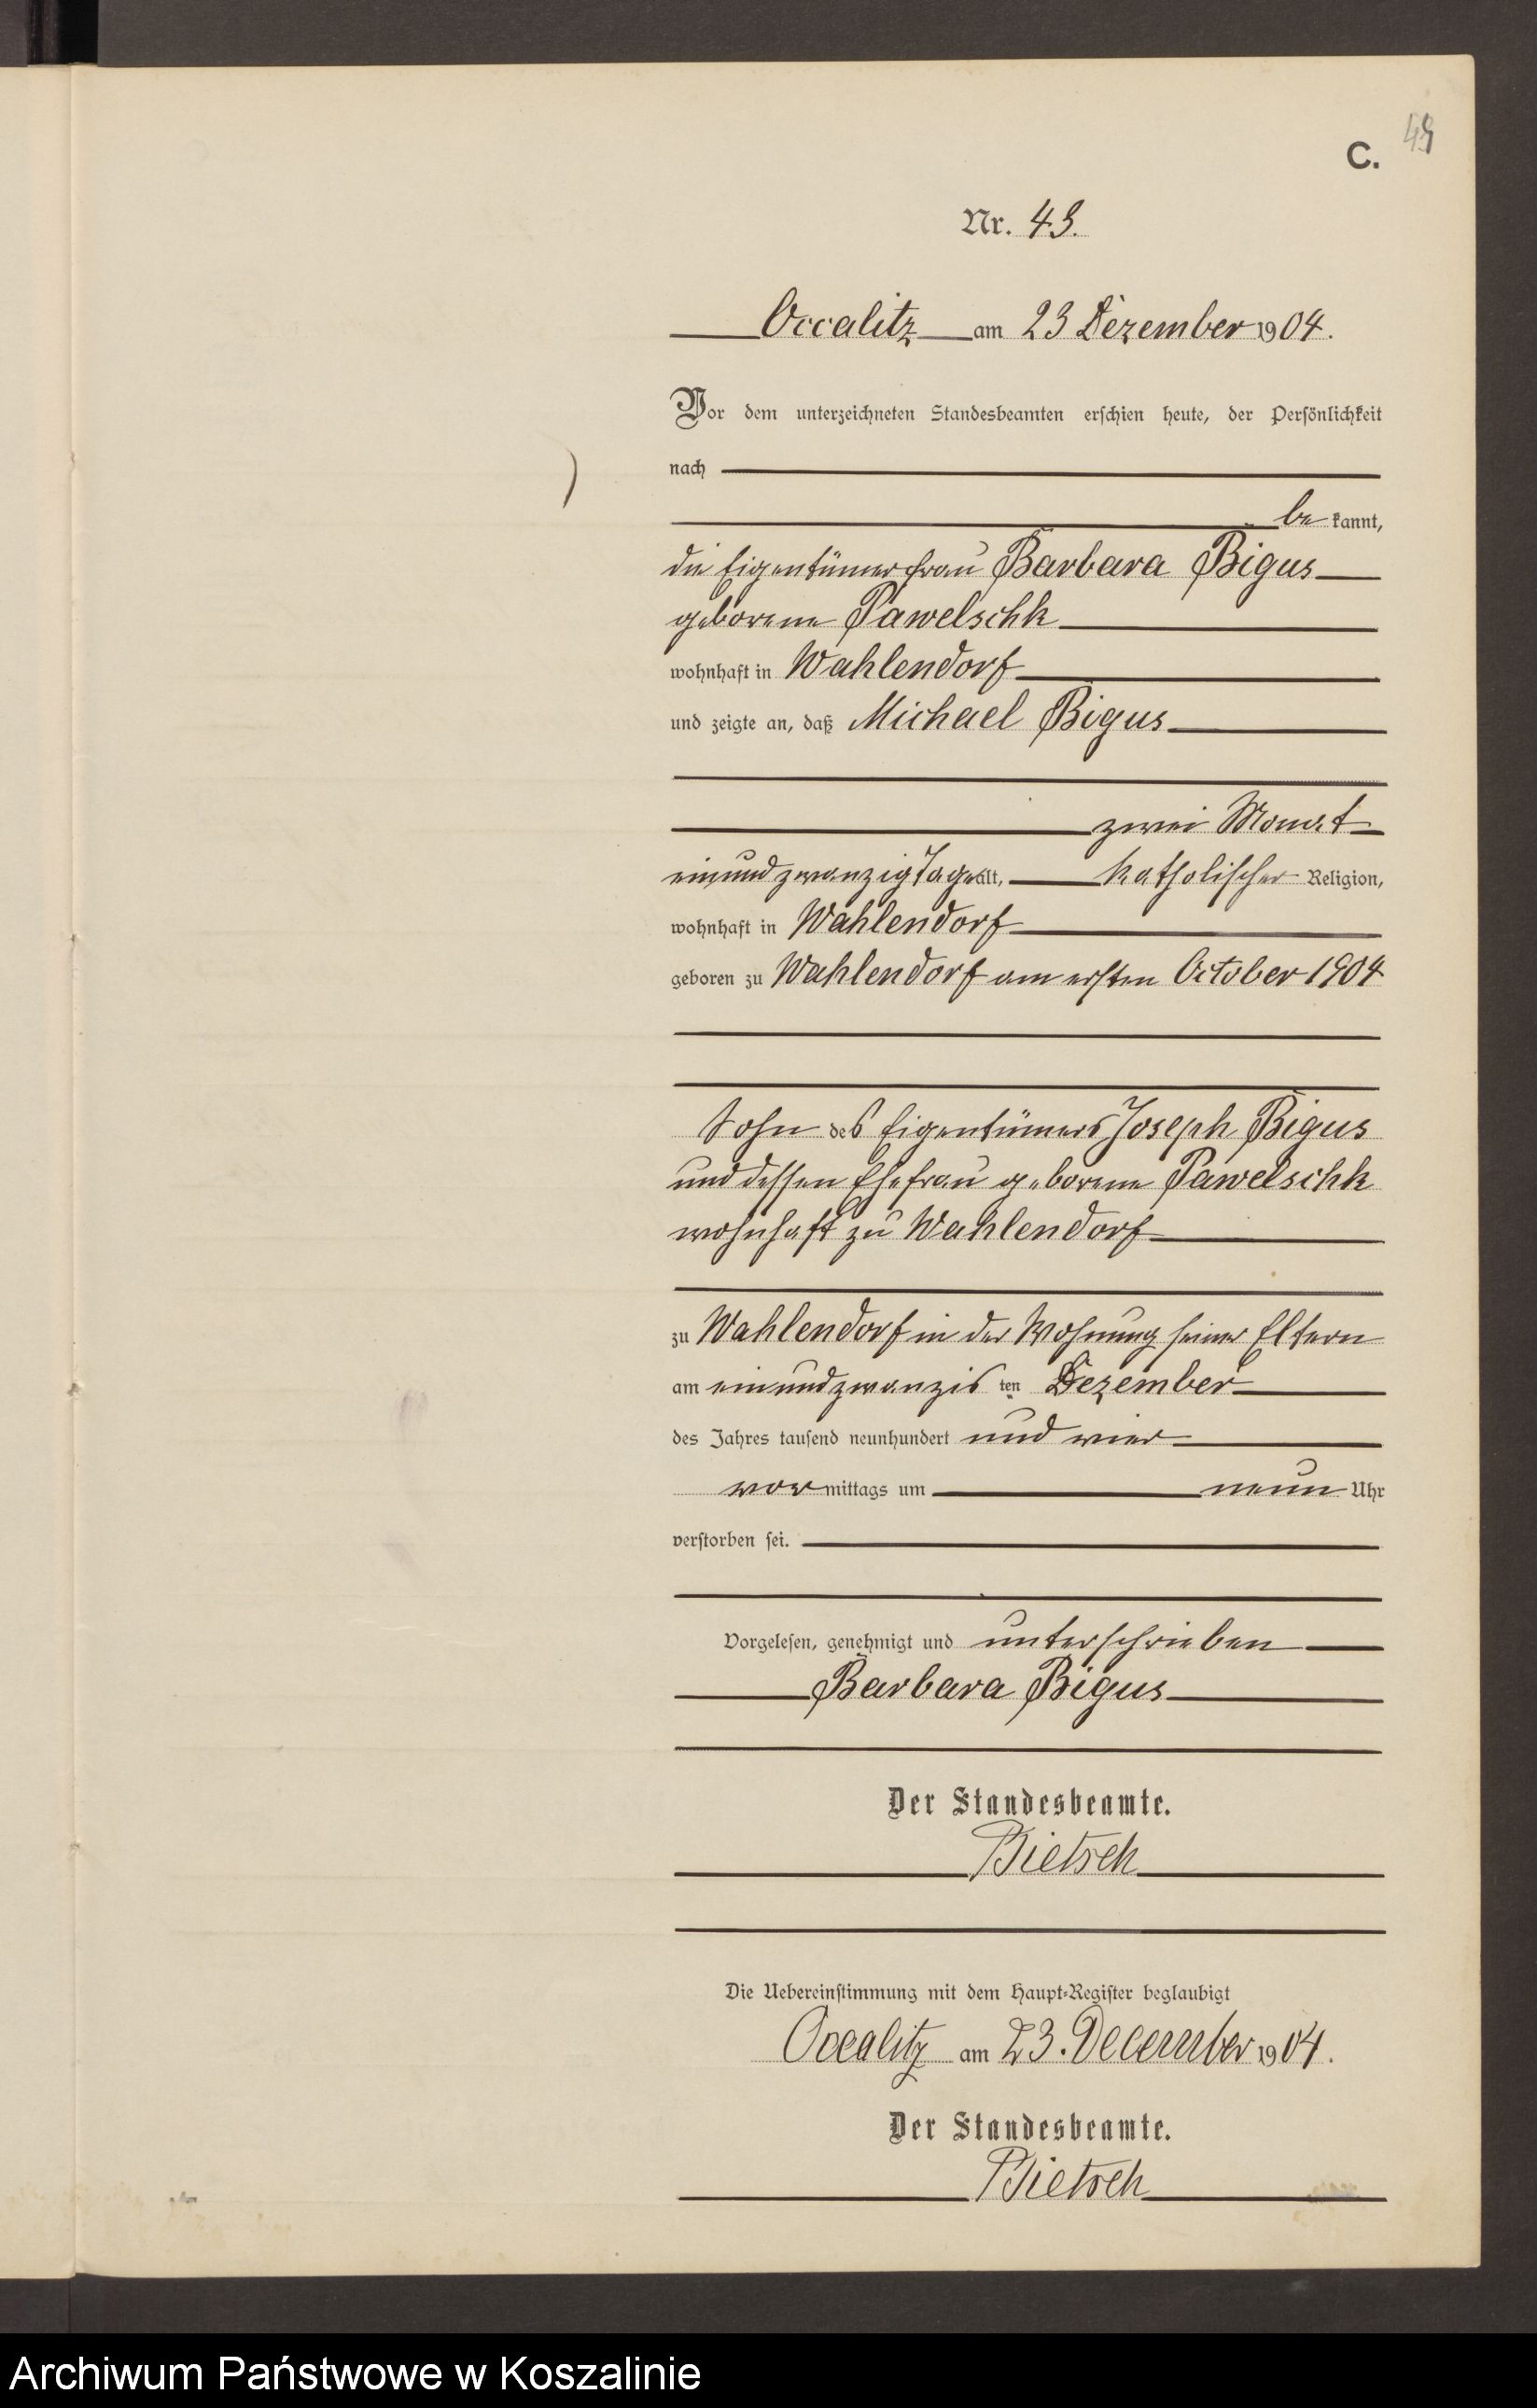 49
C.
Nr. 49.
Occalitz am 23 Dezember 1904.
Vor dem unterzeichneten Standesbeamten erschien heute, der Persönlichkeit
nach
be kannt,
die Eigentümerfrau Barbara Bigus
geborene Pawelschk
wohnhaft in Wahlendorf
und zeigte an, daß Michael Bigus
zwei Monat
einundzwanzig Tage alt, katholischer Religion,
wohnhaft in Wahlendorf
geboren zu Wahlendorf am ersten October 1904
Sohn des Eigentümers Joseph Bigus
und dessen Ehefrau geborene Pawelschk
wohnhaft zu Wahlendorf
zu Wahlendorf in der Wohnung seiner Eltern
am einundzwanzigsten Dezember
des Jahres tausend neunhundert und vier
vor mittags um neun Uhr
verstorben sei.
Vorgelesen, genehmigt und unterschrieben
Barbara Bigus
Der Standesbeamte.
Bietsch
Die Uebereinstimmung mit dem Haupt-Register beglaubigt
Occalitz am 23. December 1904.
Der Standesbeamte.
Bietsch
Archiwum Państwowe w Koszalinie